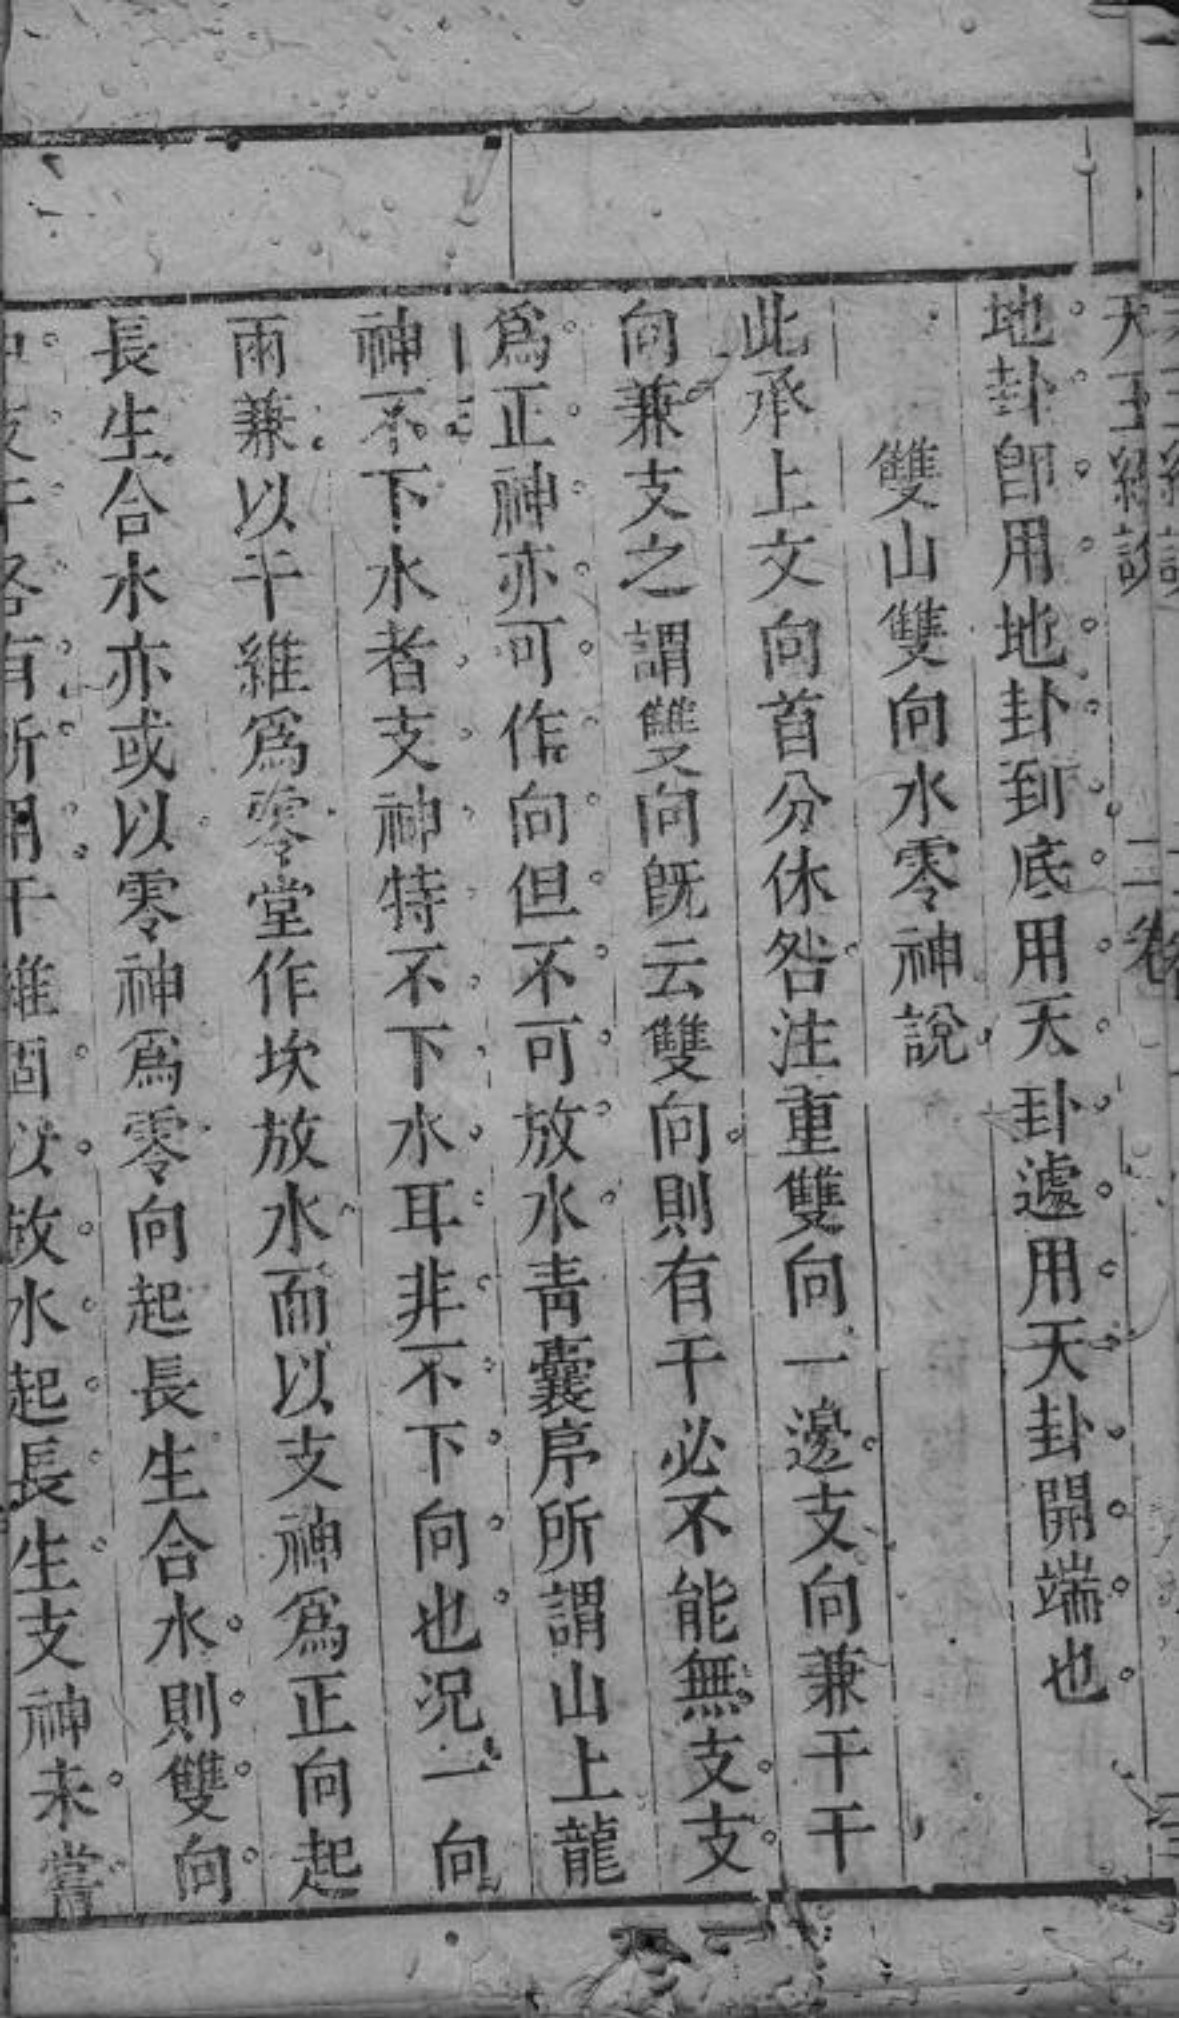 天玉經說 二卷
地卦卽用地卦到底用天卦遽用天卦開端也
雙山雙向水零神說
此承上文向首分休咎注重雙向一邊支向兼干干
向兼支之謂雙向旣云雙向則有干必不能無支支
爲正神亦可作向但不可放水青囊序所謂山上龍
神不下水者支神特不下水耳非不下向也况一向
兩兼以干維爲零堂作坎放水而以支神爲正向起
長生合水亦或以零神爲零向起長生合水則雙向
支干各有所用干維固以放水起長生支神未嘗